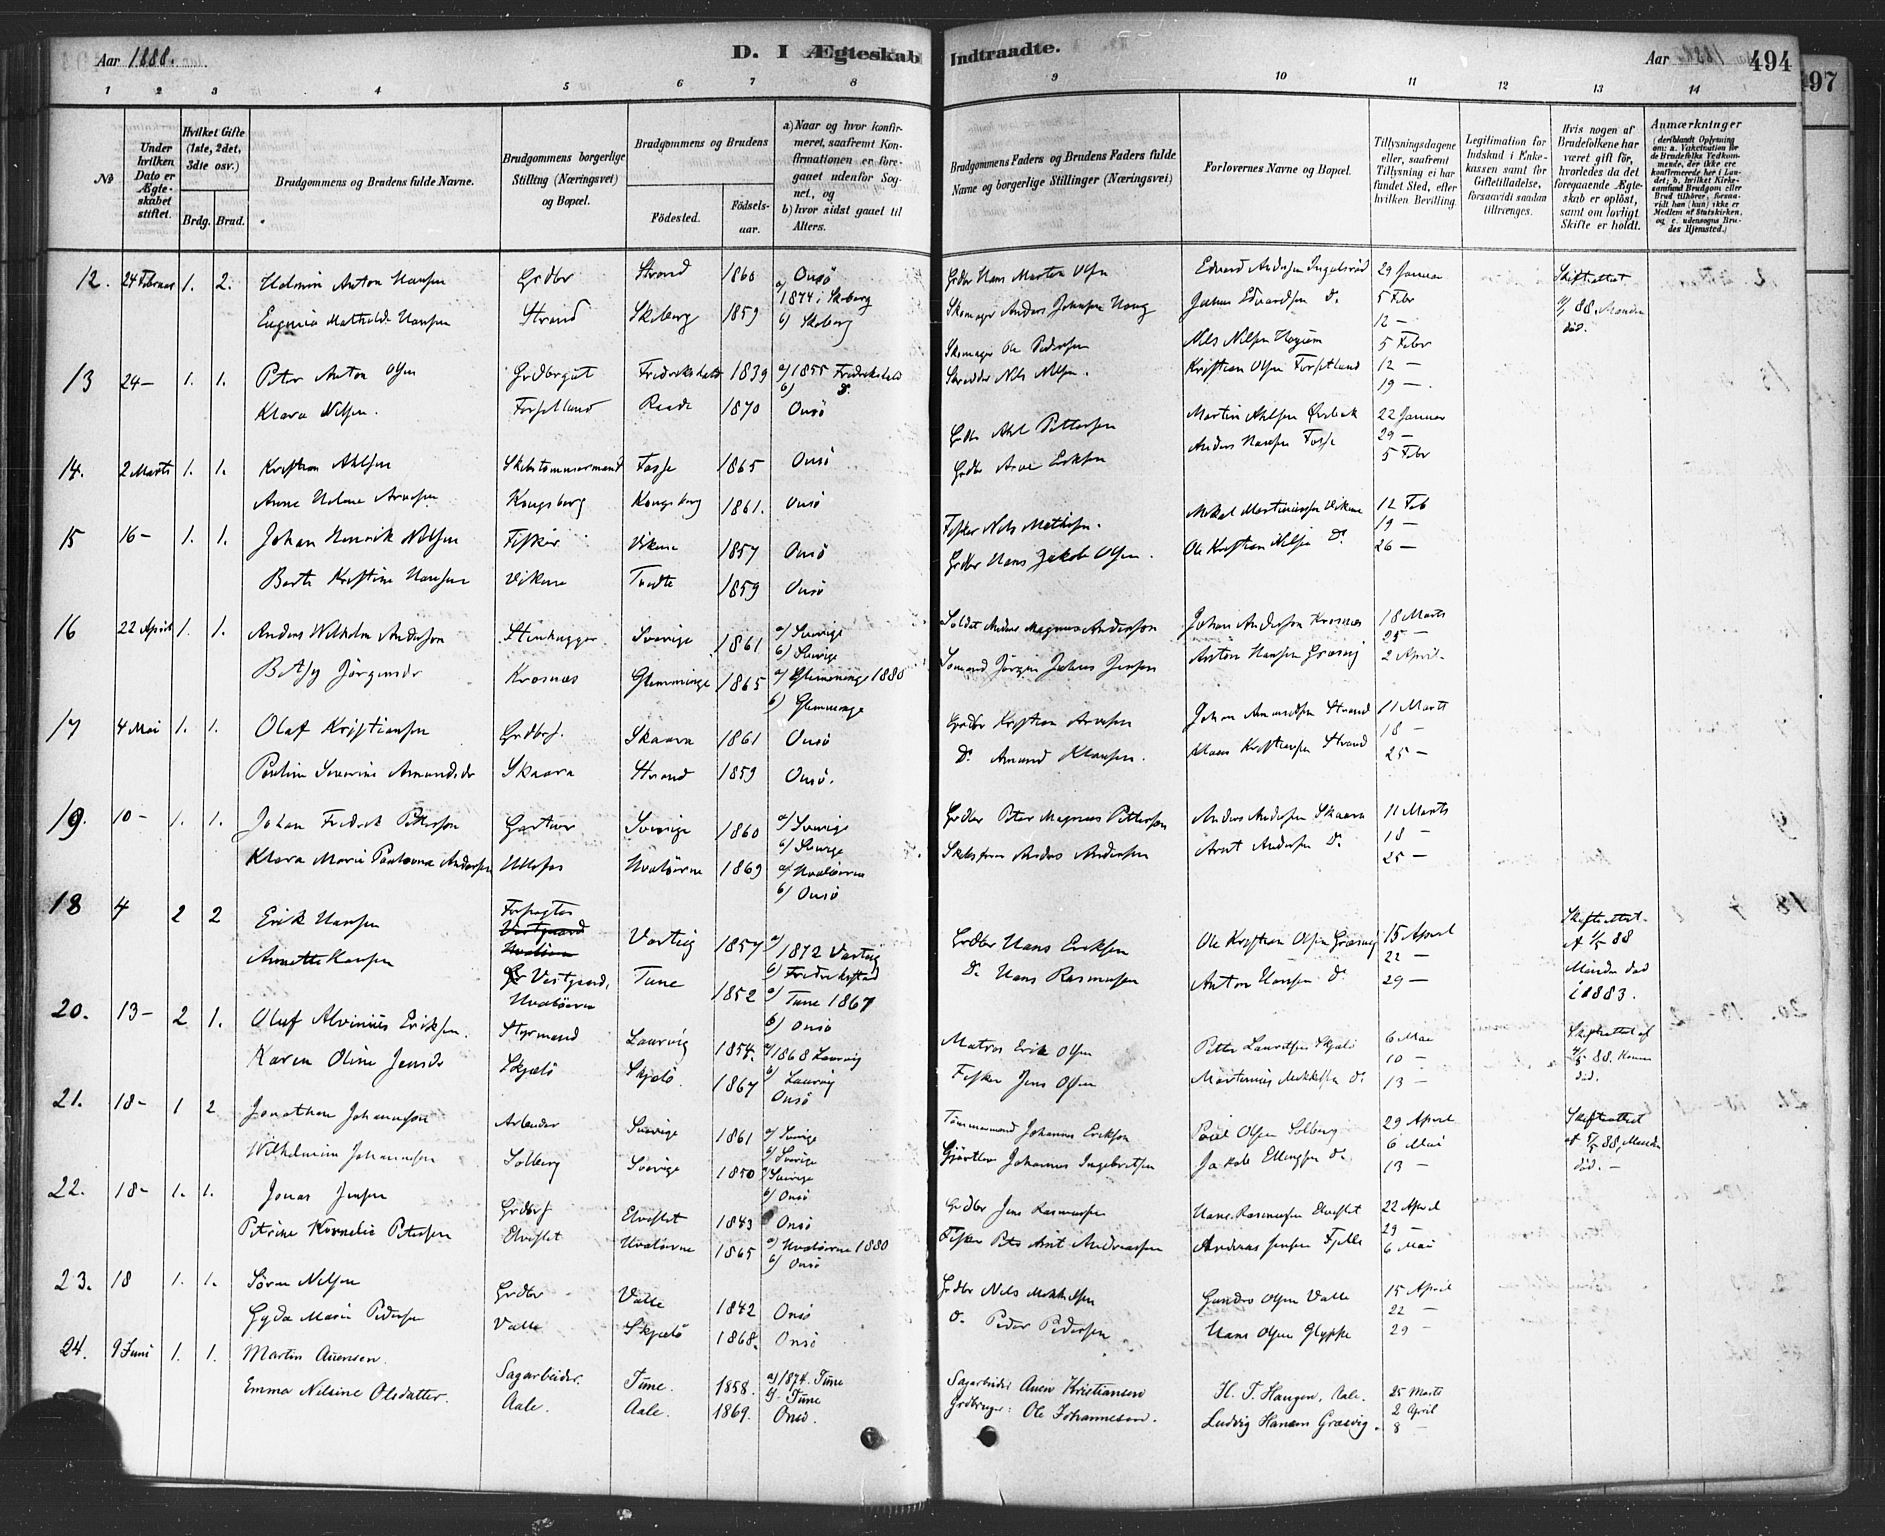 Aar 1888.
D. I Ægteskab Indtraadte.
Aar
494
497
1 2 3 4 5 6 7 8 9 10 11 12 13 14
No
Under hvilken Dato er Ægteskabet stiftet.
Hvilket Gifte (1ste, 2det, 3die osv.)
Brdg. Brud.
Brudgommens og Brudens fulde Navne.
Brudgommens borgerlige Stilling (Næringsvei) og Bopæl.
Brudgommens og Brudens
Fødested.
Fødselsaar.
a) Naar og hvor konfirmeret, saafremt Konfirmationen er foregaaet udenfor Sognet, og
b) hvor sidst gaaet til Alters.
Brudgommens Faders og Brudens Faders fulde Navne og borgerlige Stillinger (Næringsvei)
Forlovernes Navne og Bopæl.
Tillysningsdagene eller, saafremt Tillysning ei har fundet Sted, efter hvilken Bevilling.
Legitimation for Indskud i Enkekassen samt for Giftetilladelse, forsaavidt saadan tiltrænges.
Hvis nogen af Brudefolkene har været gift før, hvorledes da det foregaaende Ægteskab er opløst, samt om lovligt Skifte er holdt.
Anmærkninger
12. 24 Februar 1. 2. Halmin Anton Hansen Grdbr Strand 1860 Onsö Grdbr Hans Martin Olsen 29 Januar Skifteattest
Eugenia Mathilde Hansen Strand Skiberg 1859 a) 1874 i Skiberg b) Skiberg Skomager Anders Johnsen Haug 5 Febr 88. Manden död.
12 —
13 24 — 1. 1. Peter Anton Olsen Fredrikshald 1839 a) 1855 Fredrikshald b) D. Skomager Ole Pedersen Nils Nilsen 5 Febr
Klara Nilsen. Forsetlund Raade 1870 Onsö Skrædder Nils Nilsen. Kristian Olsen Forsetlund 12 —
19 —
14. 2 Marts 1. 1. Kristian Axelsen Skibstømmermand Fosse 1865 Onsö Grdbr Axel Pettersen Martin Axelsen 22 Januar
Anne Helene Arnesen Kongsberg Kongsberg 1861. Onsö Grdbr Arne Eriksen Anders Hansen Fosse 29 —
5 Febr
15 16 — 1. 1. Johan Henrik Nilsen Fisker Vikene 1857 Onsö Fisker Nils Mathisen. Mikal Martiniussen Vikene 12 Feb
19 —
Berte Kristine Hansen Vikene Tvedte 1859 Onsö Grdbr Hans Jakob Olsen. Ole Kristian Nilsen D. 26 —
16 22 April 1. 1. Anders Wilhelm Anderson Stenhugger Sverige 1861 a) Sverige b) Sverige Soldat Anders Magnus Andersson Johan Anderson Krosnæs 18 Marts
25 —
Betsy Jörgensdr Krosnæs Glemminge 1865 a) Glemminge 1880 b) Glemminge Sömand Jörgen Jensen Anton Hansen Græsvig 2 April
17 4 Mai 1. 1. Olaf Kristiansen Grdbrs. Skaara 1861 Onsö Grdbr Kristian Arnesen Johan Amundsen Strand 11 Marts
18 —
Pauline Severine Amundsdr Skaara Strand 1859 Onsö. D. Amund Klausen. Klaus Kristiansen Strand 25 —
19. 10 — 1. 1. Johan Fredrik Petterson Gartner Sverige 1860 a) Sverige b) Sverige Grdbr Peter Magnus Petterson Anders Andersen Skaara 11 Marts
18 —
Klara Marie Paulowna Andersen Hvalöerne 1869 a) Hvalöerne b) Onsö Anders Andersen Arnt Andersen D. 25 —
18 4 2 2 Erik Hansen Forpagter Varteig 1857 a) 1872 Varteig b) Fredrikstad Grdbr Hans Eriksen Ole Kristian Olsen Græsvig 15 April Skifteattest.
22 —
Annette Hansen Vestgaard, Hvalöerne Tune 1852 a) Tune 1867 b) Onsö D. Hans Rasmussen Anton Hansen D. 29 — Manden död i 1883.
20. 13 — 2 1. Oluf Alvinius Eriksen. Styrmand Laurvig 1854. a) 1868 Laurvig b) Laurvig Matros Erik Olsen Petter Lauritsen Skjelö 6 Mai Skifteattest af
10 —
Karen Oline Jensdr Skjelö Skjelö. 1867 Onsö Fisker Jens Olsen D. 13 — 88. Konen död.
21. 18 — 1 2 Jonathan Johannson Arbeider Sverige 1861 a) Sverige b) Sverige Tømmermand Johannes Erikson Olsen Solberg 29 April Skifteattest
6 Mai
Wilhelmine Johannesen Solberg Sverige 1850 a) Sverige b) Onsö Johannes Ingebretsen Jakob Ellingsen D. 13 — 88, Manden död. —
22. 18 — 1. 1. Jonas Jensen Grdbrs Elvestet 1843 Onsö Grdbr Jens Rasmussen Hans Rasmussen Elvestet 22 April
29 —
Petrine Kornelie Petersen Elvestet Hvalöerne 1865 a) Hvalöerne 1880 b) Onsö Fisker Peter Arnt Andreassen Andreas Jensen Fjelle 6 Mai
23. 18 1. 1. Sören Nilsen Grdbr Valle 1842 Onsö Grdbr Nils Mikkelsen Gunder Olsen Valle 15 April
22 —
Gyda Marie Pedersen Valle Skjelö 1868. Onsö D. Peder Pedersen Hans Olsen Glyppe 29 —
24. 9 Juni 1. 1. Martin Auensen. Sagarbeider. Tune. 1858. a) 1874. Tune b) Tune Sagarbeider Auen Kristiansen H. T. Haugen, Aale. 25 Marts
2 April
Emma Nilsine Olsdatter. Aale. Aale. 1869. Onsö. Ole Johannesen. Ludvig Hansen Græsvig. 8 —